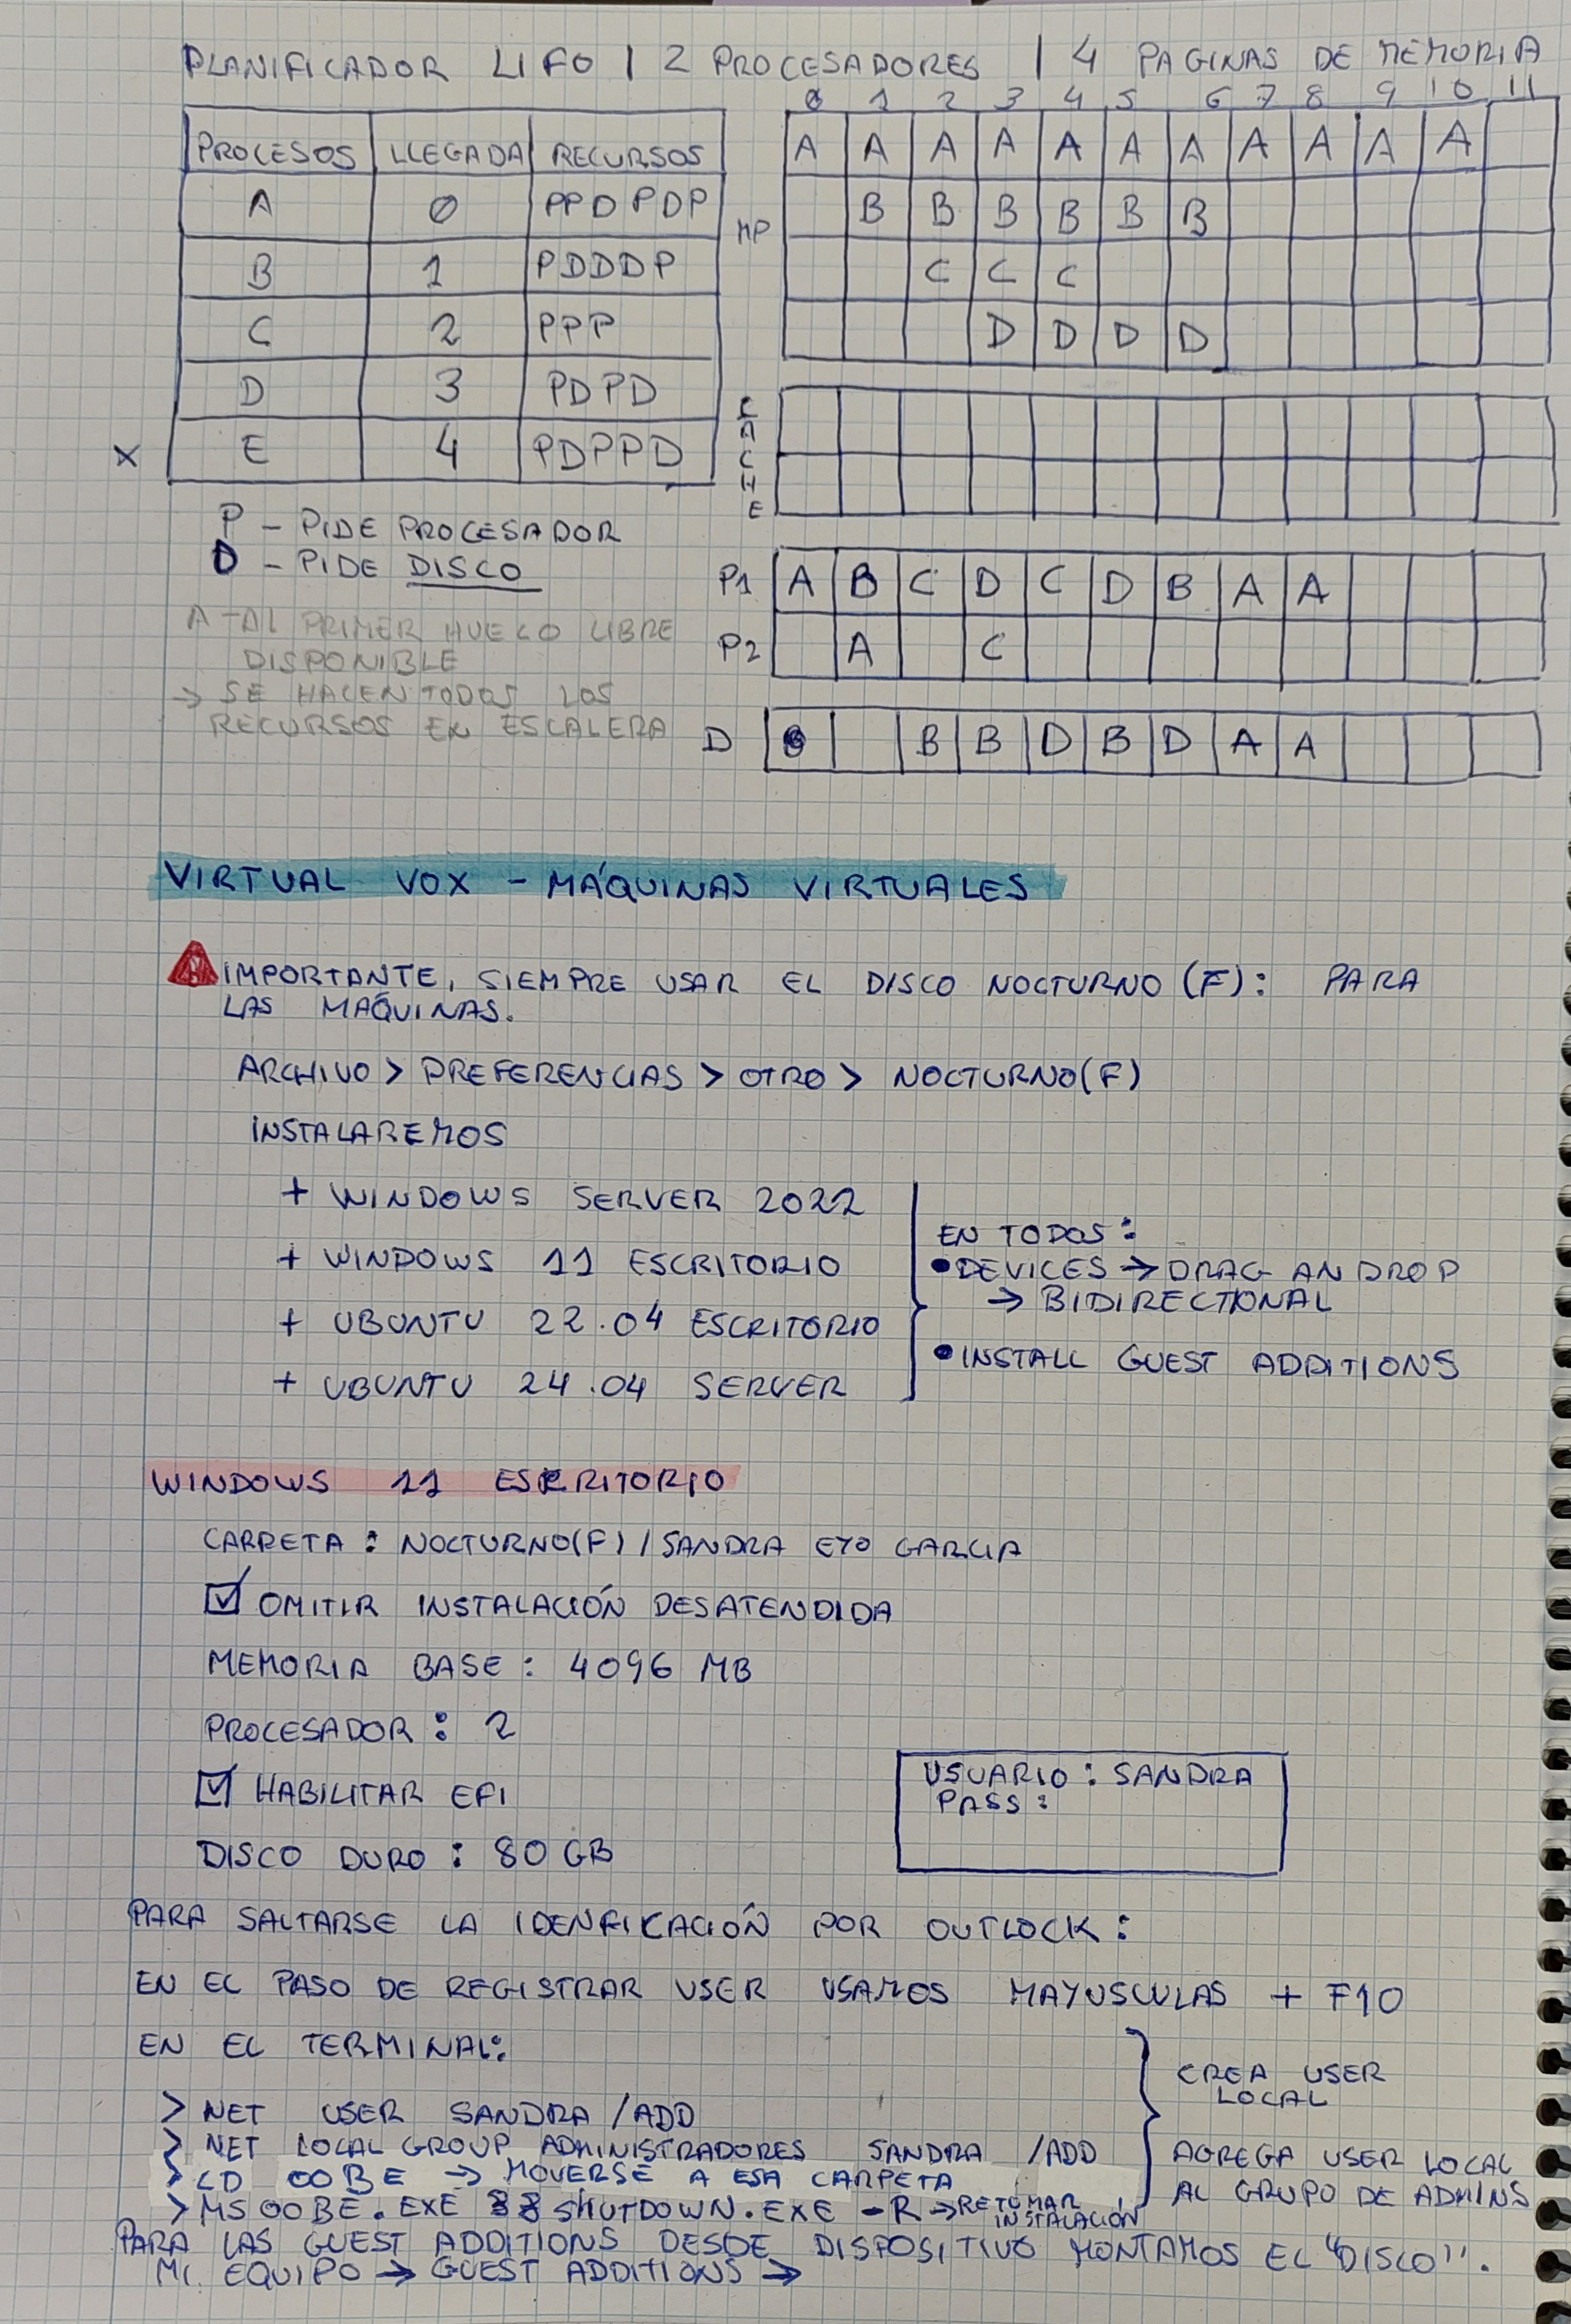 PLANIFICADOR LIFO | 2 PROCESADORES | 4 PAGINAS DE MEMORIA
0 1 2 3 4 5 6 7 8 9 10 11
PROCESOS LLEGADA RECURSOS
A 0 PPDPDP
B 1 PDDDP
C 2 PPP
D 3 PDPD
X E 4 PDPPD
MP
A A A A A A A A A A A
B B B B B B
C C C
D D D D
CACHE
P1 A B C D C D B A A
P2 A C
D B B D B D A A
P - PIDE PROCESADOR
D - PIDE DISCO
AL PRIMER HUECO LIBRE
DISPONIBLE
→ SE HACEN TODOS LOS
RECURSOS EN ESCALERA
VIRTUAL VOX - MÁQUINAS VIRTUALES
IMPORTANTE, SIEMPRE USAR EL DISCO NOCTURNO (F): PARA
LAS MAQUINAS.
ARCHIVO > PREFERENCIAS > OTRO > NOCTURNO(F)
INSTALAREMOS
+ WINDOWS SERVER 2022
+ WINDOWS 11 ESCRITORIO
+ UBUNTU 22.04 ESCRITORIO
+ UBUNTU 24.04 SERVER
EN TODOS:
• DEVICES → DRAG AN DROP
→ BIDIRECTIONAL
• INSTALL GUEST ADDITIONS
WINDOWS 11 ESCRITORIO
CARPETA: NOCTURNO(F) / SANDRA EYO GARCIA
☑ OMITIR INSTALACIÓN DESATENDIDA
MEMORIA BASE: 4096 MB
PROCESADOR: 2
☑ HABILITAR EFI
DISCO DURO: 80 GB
USUARIO: SANDRA
PASS:
PARA SALTARSE LA IDENFICACIÓN POR OUTLOCK:
EN EL PASO DE REGISTRAR USER USAMOS MAYUSCULAS + F10
EN EL TERMINAL:
> NET USER SANDRA /ADD
> NET LOCALGROUP ADMINISTRADORES SANDRA /ADD
> CD OOBE → MOVERSE A ESA CARPETA
> MSOOBE.EXE && SHUTDOWN.EXE -R → RETOMAR INSTALACIÓN
CREA USER
LOCAL
AGREGA USER LOCAL
AL GRUPO DE ADMINS
PARA LAS GUEST ADDITIONS DESDE DISPOSITIVO MONTAMOS EL "DISCO".
MI EQUIPO → GUEST ADDITIONS →